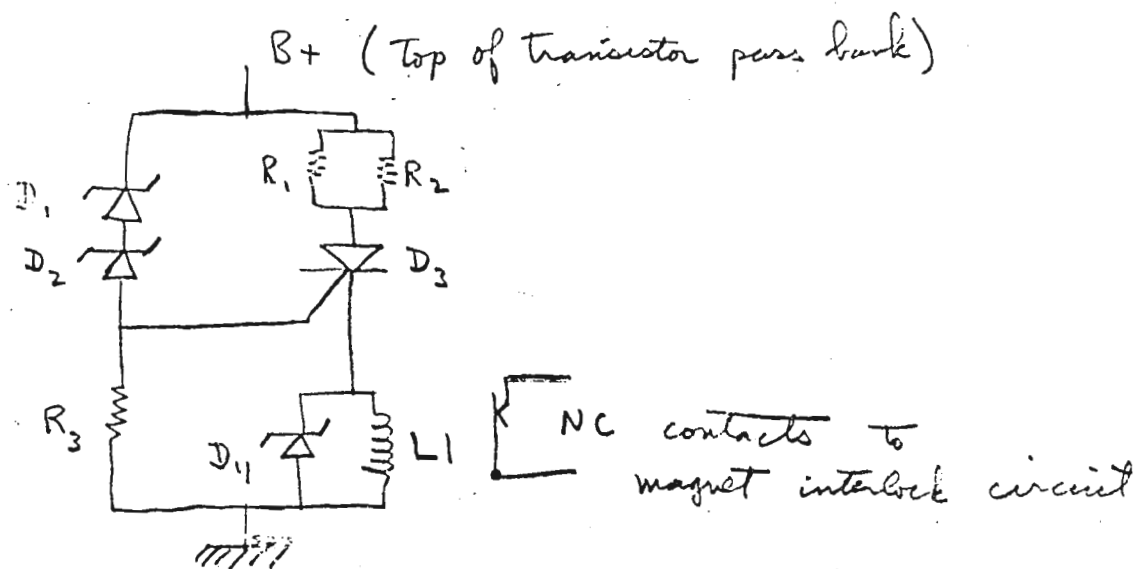 B+ (Top of transistor pass bank)
R1
R2
D1
D2
D3
R3
D4
L1
NC contacts to
magnet interlock circuit